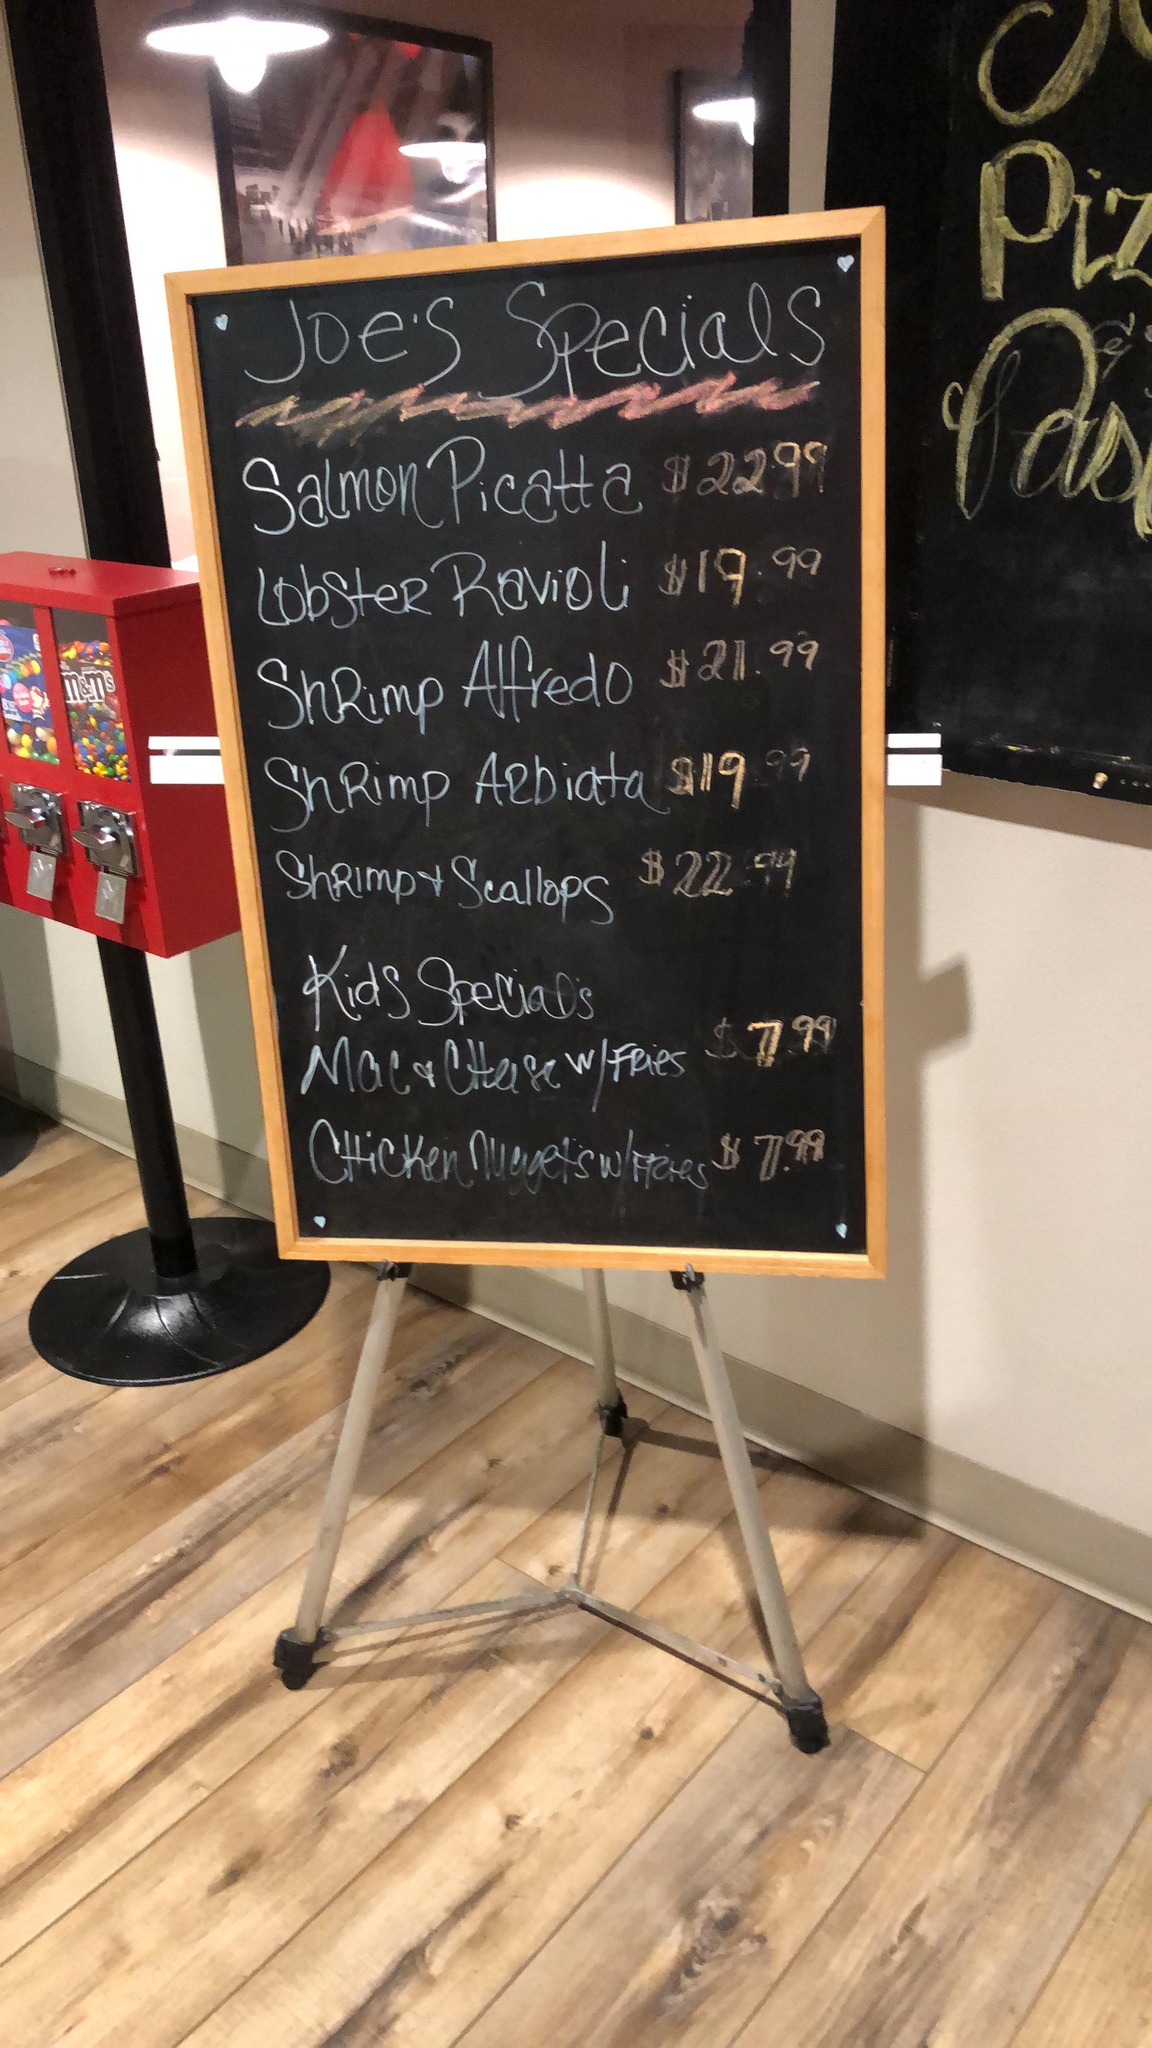 Joe's Specials
Salmon Picatta $22.99
Lobster Ravioli $19.99
Shrimp Alfredo $21.99
Shrimp Arbiata $19.99
Shrimp & Scallops $22.99
Kids Special's
Mac & Cheese w/Fries $7.99
Chicken Nuggets w/Fries $7.99
m&m's
Piz
Pas